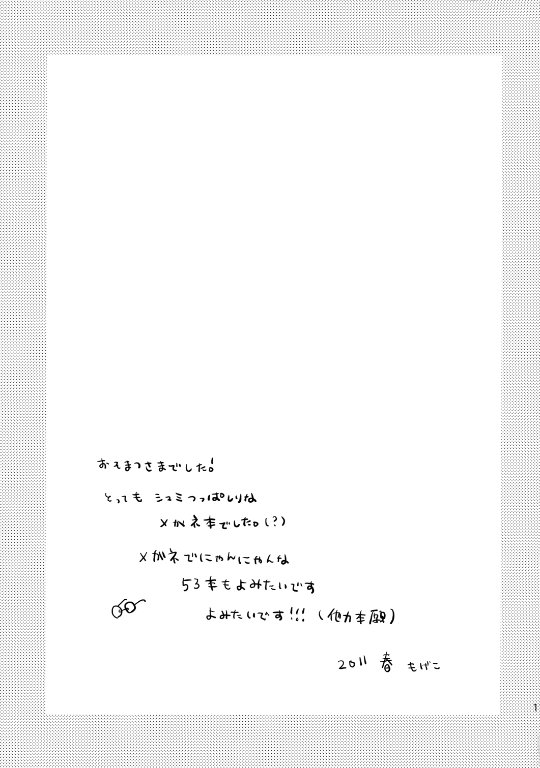 おそまつさまでした!
とっても シュミつっぱしりな
メガネ本でした。(?)
メガネでにゃんにゃんな
53本もよみたいです
よみたいです!!! (他力本願)
2011 春 もげこ
1